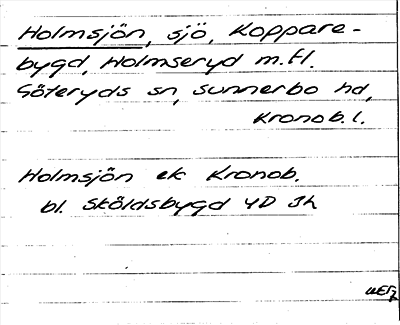 Holmsjön, sjö, Koppare-
bygd, Holmseryd m.fl.
Göteryds sn, Sunnerbo hd,
Kronob.l.
Holmsjön ek Kronob.
bl. Sköldsbygd 4D 3h